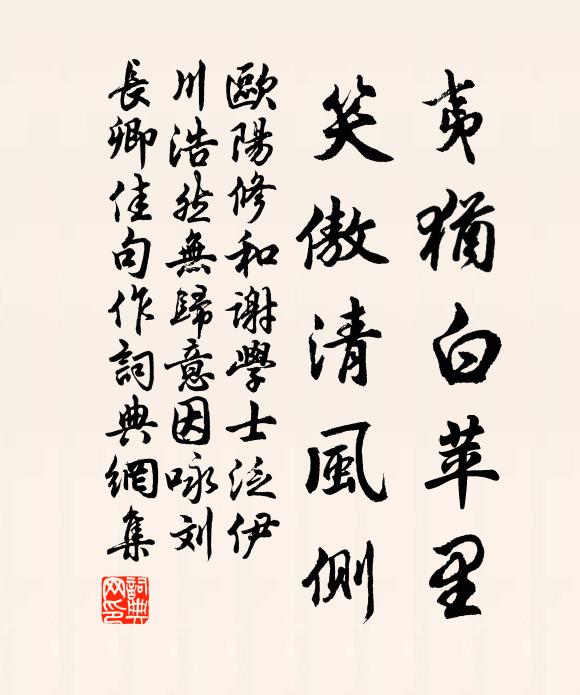 夷猶白苹里
笑傲清風側
歐陽修和謝學士泛伊
川浩然無歸意因咏刘
長卿佳句作詞典網集
詞典網印